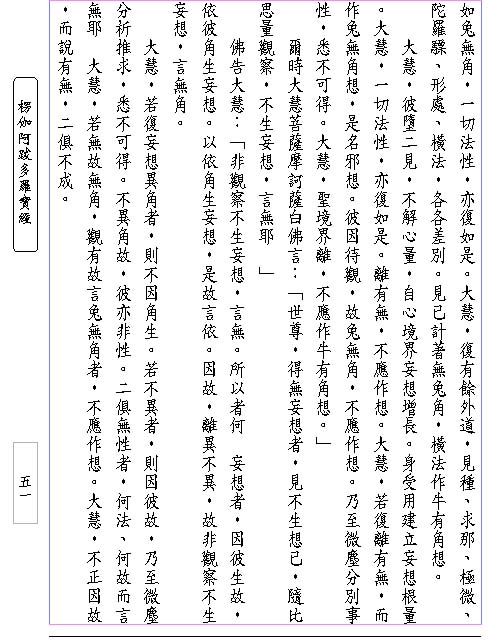 如兔無角，一切法性，亦復如是。大慧，復有餘外道，見種、求那、極微、
陀羅驃、形處、橫法，各各差別。見已計著無兔角，橫法作牛有角想。
大慧，彼墮二見，不解心量，自心境界妄想增長。身受用建立妄想根量
。大慧，一切法性，亦復如是。離有無，不應作想。大慧，若復離有無，而
作兔無角想，是名邪想。彼因待觀，故兔無角，不應作想。乃至微塵分別事
性，悉不可得。大慧，聖境界離，不應作牛有角想。」
爾時大慧菩薩摩訶薩白佛言：「世尊，得無妄想者，見不生想已，隨比
思量觀察，不生妄想，言無耶 」
佛告大慧：「非觀察不生妄想，言無。所以者何 妄想者，因彼生故，
依彼角生妄想。以依角生妄想，是故言依。因故，離異不異，故非觀察不生
妄想，言無角。
大慧，若復妄想異角者，則不因角生。若不異者，則因彼故，乃至微塵
分析推求，悉不可得。不異角故，彼亦非性。二俱無性者，何法、何故而言
無耶 大慧，若無故無角，觀有故言兔無角者，不應作想。大慧，不正因故
，而說有無，二俱不成。
楞伽阿跋多羅寶經
五一